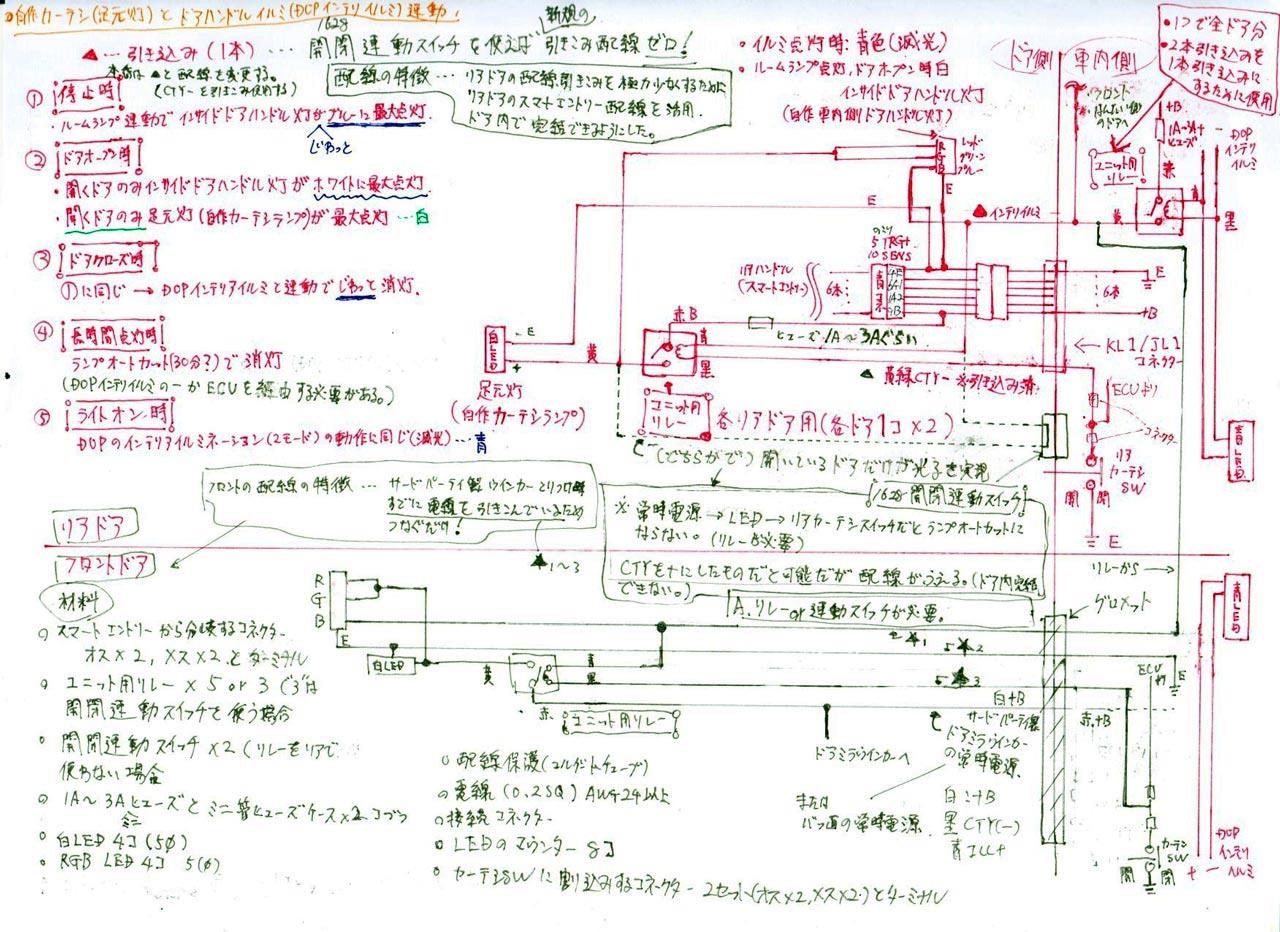 自作カーテシ(足元灯)とドアハンドルイルミ(DOPインテリイルミ)連動!
▲… 引き込み(1本) …
1628 新規の
開閉連動スイッチを使えば引きこみ配線ゼロ!
▲と配線を変更する。
(CTY−を引きこみ使用する)
配線の特徴… リアドアの配線引きこみを極力少なくするために
リアドアのスマートエントリー配線を活用。
ドア内で完結できるようにした。
① 停止時
・ルームランプ連動でインサイドドアハンドル灯がブルーに最大点灯。
じわっと
② ドアオープン時
・開くドアのみインサイドドアハンドル灯がホワイトに最大点灯
・開くドアのみ足元灯(自作カーテシランプ)が最大点灯 …白
③ ドアクローズ時
①に同じ → DOPインテリアイルミと連動でじわっと消灯。
④ 長時間点灯時
ランプオートカット(30分?)で消灯
(DOPインテリイルミの−がECUを経由する必要がある。)
⑤ ライトオン時
DOPのインテリアイルミネーション(2モード)の動作に同じ(減光)…青
・イルミ点灯時:青色(減光)
・ルームランプ点灯、ドアオープン時白
インサイドドアハンドル灯
(自作車内側ドアハンドル灯)
ドア側
車内側
・1つで全ドア分
・2本引き込みを
1本引き込みに
するために使用
+B
1A
ヒューズ
赤
+ − DOP
インテリ
イルミ
ユニット用
リレー
青
黒
黄
R レッド
G グリーン
B ブルー
E
E
▲ インテリイルミ
5 TRG+
10 SENS
リアハンドル
(スマートエントリー)
6本
青
黒
6本
E
+B
赤B
ヒューズ1A〜3Aぐらい
白LED
− E
+
黄
青
黒
足元灯
(自作カーテシランプ)
ユニット用
リレー
各リアドア用(各ドア1コ×2)
← KL1/JL1
コネクター
▲ 黄緑CTY−
ECUより
コネクター
リア
カーテシ
SW
開 閉
E
青LED
(どちらかで) 開いているドアだけが光るを実現
1628 開閉連動スイッチ
フロントの配線の特徴… サードパーティ製ウインカーとりつけ時
すでに電線を引きこんでいるため
つなぐだけ!
▲1〜3
※常時電源→LED→リアカーテシスイッチだとランプオートカットに
ならない。(リレー必要)
CTYを+にしたものだと可能だが配線がふえる。(ドア内完結
できない。)
A. リレー or 連動スイッチが必要。
リアドア
フロントドア
リレーから →
グロメット
青LED
材料
○ スマートエントリーから分岐するコネクター
オス×2, メス×2とターミナル
○ ユニット用リレー×5 or 3
開閉連動スイッチを使う場合
○ 開閉連動スイッチ×2 (リレーをリアで
使わない場合
○ 1A〜3Aヒューズとミニ管ヒューズケース×2コづつ
○ 白LED 4コ(5φ)
○ RGB LED 4コ 5(φ)
R
G
B
E
白LED
黄
青
黒
赤
ユニット用リレー
ドアミラーウインカーへ
白+B
サードパーティ製
ドアミラーウインカー
の常時電源
または
の常時電源
白:+B
黒 CTY(−)
青 ILL+
赤:+B
E
カーテシ
SW
開 閉
+ −
DOP
インテリ
イルミ
○ 配線保護(コルゲートチューブ)
○ 電線(0.2SQ) AWG24以上
○ 接続コネクター
○ LEDのマウンター 8コ
○ カーテシSWに割り込みするコネクター 2セット(オス×2,メス×2)とターミナル